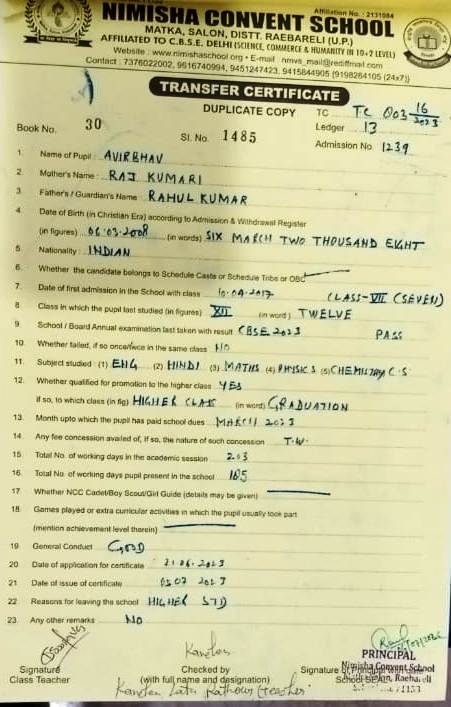 Affiliation No. : 2131084
NIMISHA CONVENT SCHOOL
MATKA, SALON, DISTT. RAEBARELI (U.P.)
AFFILIATED TO C.B.S.E. DELHI (SCIENCE, COMMERCE & HUMANITY IN 10+2 LEVEL)
Website : www.nimishaschool.org • E-mail : nmvs_mail@rediffmail.com
Contact : 7376022002, 9616740994, 9451247423, 9415844905 (9198264105 (24x7))
TRANSFER CERTIFICATE
DUPLICATE COPY
TC TC 003 16/2023
Book No. 30
Sl. No. 1485
Ledger 13
Admission No. 1239
1. Name of Pupil : AVIRBHAV
2. Mother's Name : RAJ KUMARI
3. Father's / Guardian's Name : RAHUL KUMAR
4. Date of Birth (in Christian Era) according to Admission & Withdrawal Register
(in figures) 06.03.2008 (in words) SIX MARCH TWO THOUSAND EIGHT
5. Nationality : INDIAN
6. Whether the candidate belongs to Schedule Caste or Schedule Tribe or OBC
7. Date of first admission in the School with class 10.04.2017 CLASS-VII (SEVEN)
8. Class in which the pupil last studied (in figures) XII (in word) TWELVE
9. School / Board Annual examination last taken with result CBSE 2023 PASS
10. Whether failed, if so once/twice in the same class NO
11. Subject studied : (1) ENG (2) HINDI (3) MATHS (4) PHYSICS (5) CHEMISTRY C.S
12. Whether qualified for promotion to the higher class YES
if so, to which class (in fig) HIGHER CLASS (in word) GRADUATION
13. Month upto which the pupil has paid school dues MARCH 2023
14. Any fee concession availed of, if so, the nature of such concession T.W.
15. Total No. of working days in the academic session 203
16. Total No. of working days pupil present in the school 185
17. Whether NCC Cadet/Boy Scout/Girl Guide (details may be given)
18. Games played or extra curricular activities in which the pupil usually took part
(mention achievement level therein)
19. General Conduct GOOD
20. Date of application for certificate 21.06.2023
21. Date of issue of certificate 03 07 2023
22. Reasons for leaving the school HIGHER STD
23. Any other remarks NO
PRINCIPAL
Signature Checked by Signature of Principal
Nimisha Convent School
Class Teacher (with full name and designation) School
Salon, Raebareli
Kanchan Lata Rathour (teacher)